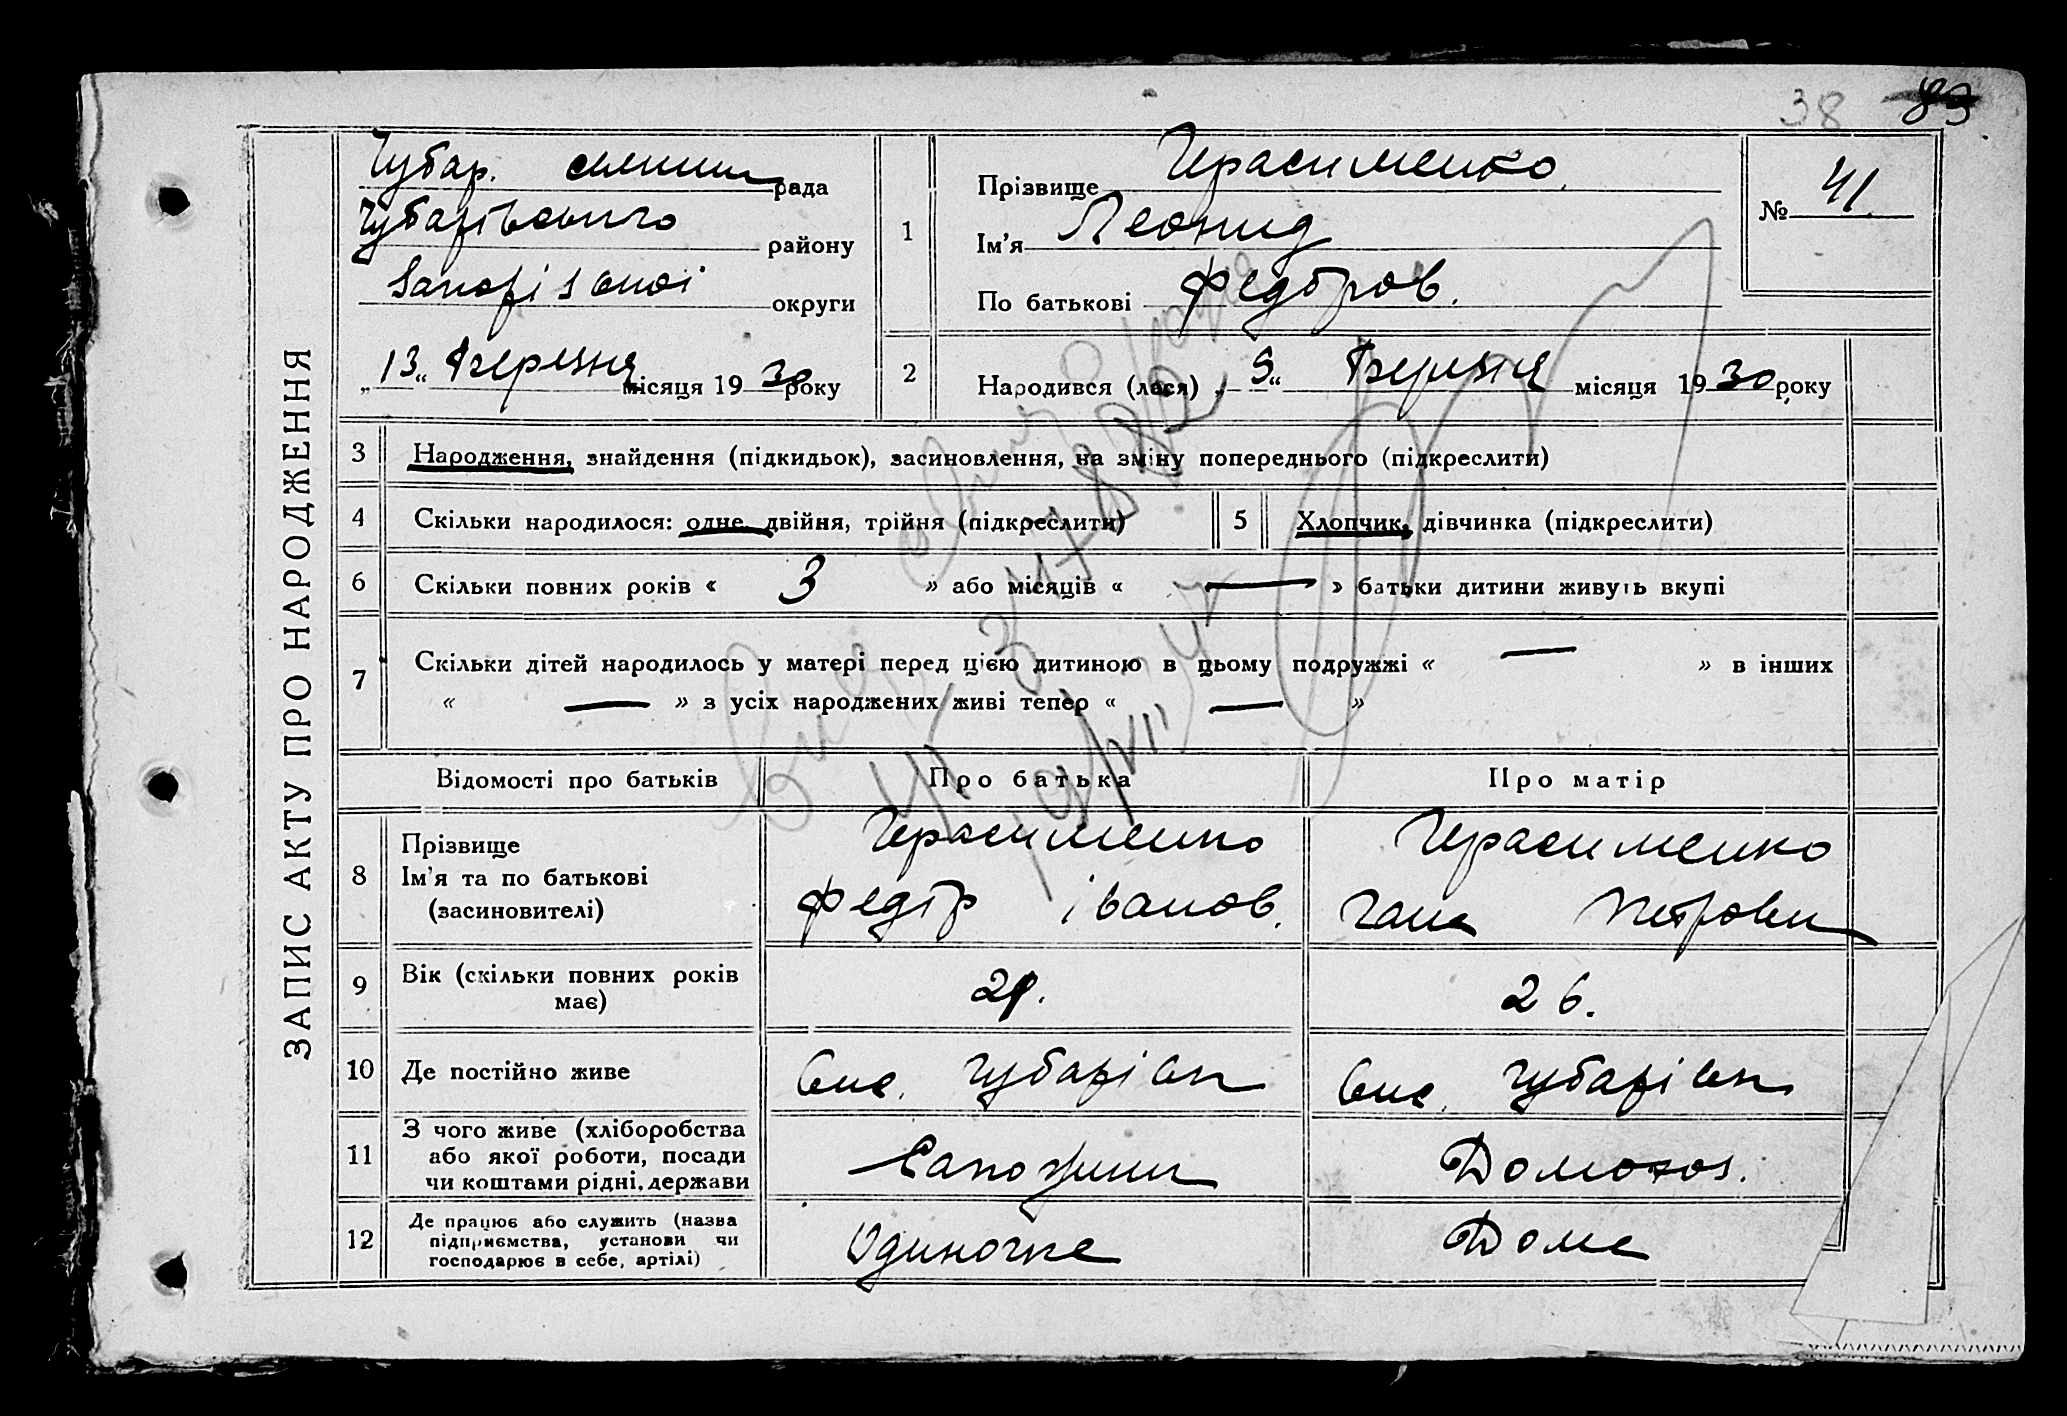 38 83
ЗАПИС АКТУ ПРО НАРОДЖЕННЯ
Чубар. сельищ рада
Чубарівського району
Запорізької округи
„13“ березня місяця 1930 року
1
Прізвище Герасименко
Ім'я Леонид
По батькові Федоров.
№ 41
2
Народився (лася) „9“ Березня місяця 1930 року
3 Народження, знайдення (підкидьок), засиновлення, на зміну попереднього (підкреслити)
4 Скільки народилося: одне, двійня, трійня (підкреслити) 5 Хлопчик, дівчинка (підкреслити)
6 Скільки повних років « 3 » або місяців « — » батьки дитини живуть вкупі
7 Скільки дітей народилось у матері перед цією дитиною в цьому подружжі « — » в інших
« — » з усіх народжених живі тепер « — »
Відомості про батьків Про батька Про матір
8
Прізвище
Ім'я та по батькові
(засиновителі)
Герасименко
Федір Іванов.
Герасименко
Гана Петровн
9 Вік (скільки повних років
має)
26.
10 Де постійно живе Сис. Чубарівк Сис. Чубарівк
11 З чого живе (хліборобства
або якої роботи, посади
чи коштами рідні, держави
Сапожник
Домохоз.
12 Де працює або служить (назва
підприємства, установи чи
господарює в себе, артілі)
Одиночка
Дома